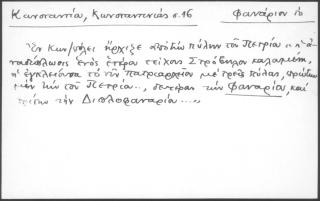 Κωνσταντία, Κωνσταντινιάς σ. 16 Φανάριον το
Ἐν Κων/πόλει ἤρχιζε ἀπὸ τὴν πύλην τοῦ Πετρίου "ἡ
ἑνὸς ἑτέρου τείχους
ἡ ἐγκλείουσα τὸ πατριαρχεῖον μὲ τρεῖς πύλας, πρώτην
μὲν τὴν τοῦ Πετρίου.., δευτέραν τὴν Φαναρίου, καὶ
τρίτην τὴν Διπλοφαναρίου...."